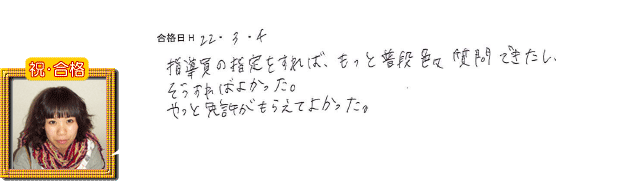 合格日 H 22・3・4
祝・合格
指導員の指定をすれば、もっと普段色々質問できたし、
そうすればよかった。
やっと免許がもらえてよかった。